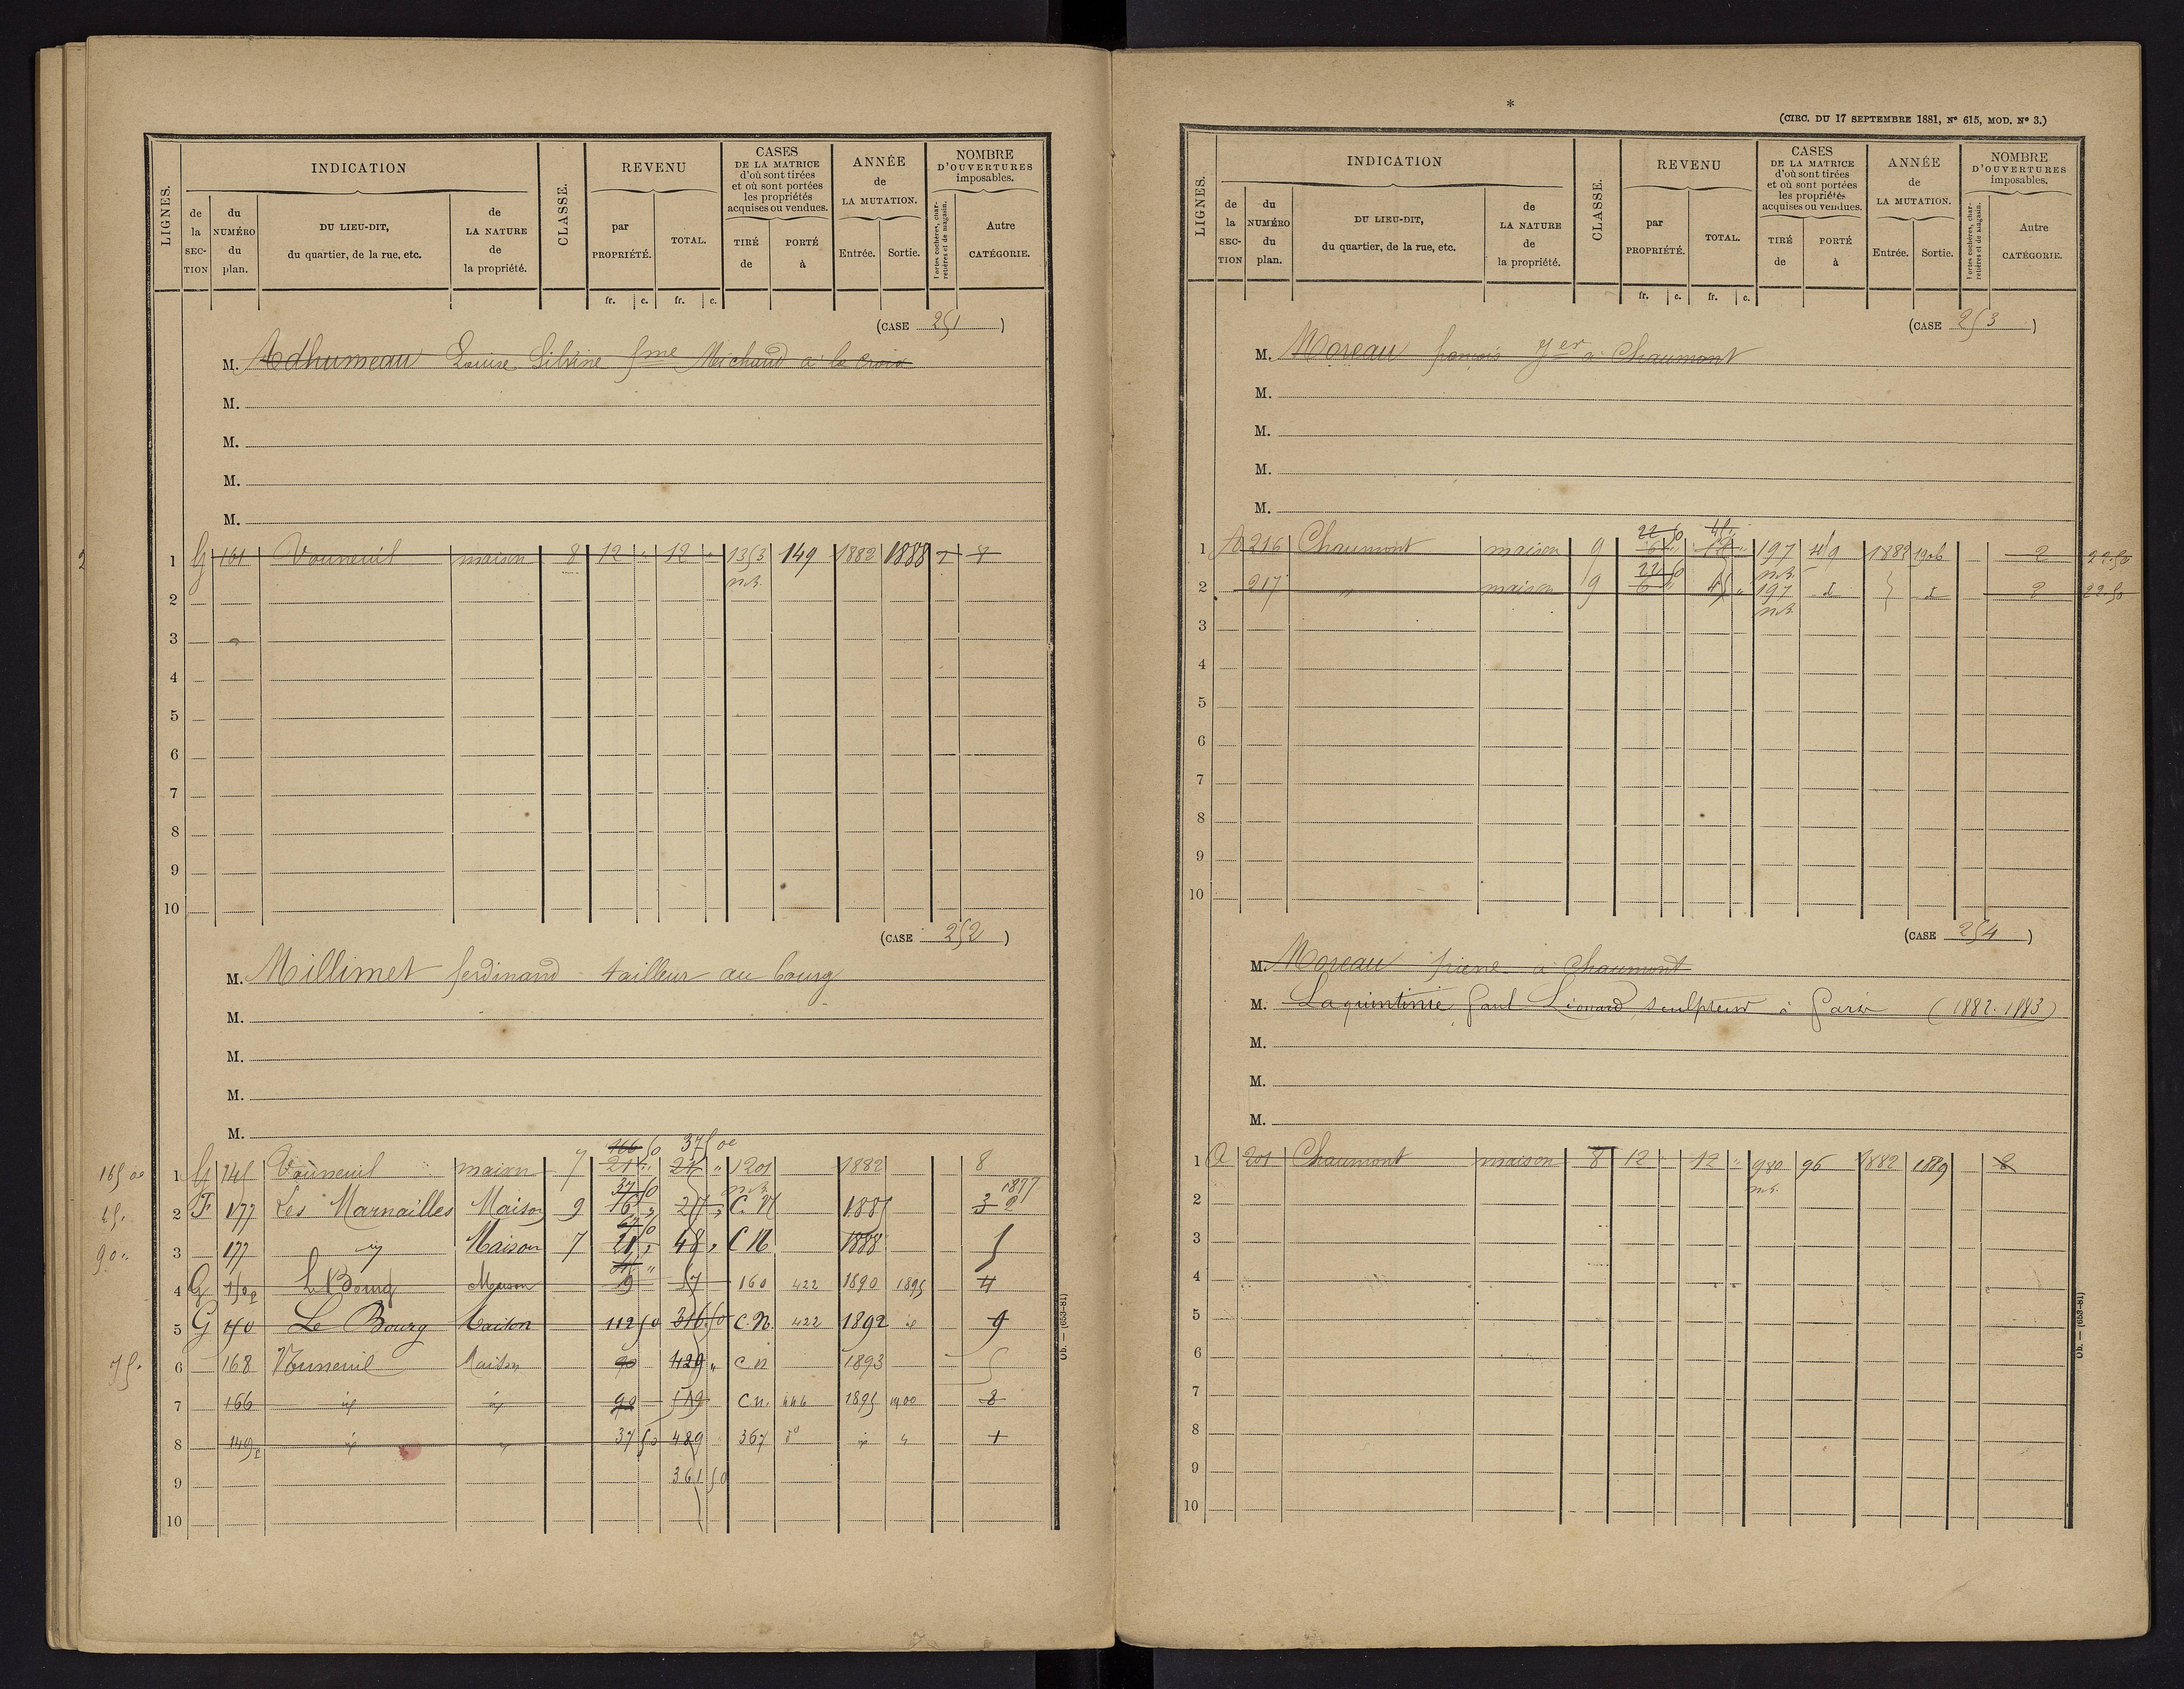 LIGNES.
INDICATION
de la SECTION
du NUMÉRO du plan.
DU LIEU-DIT, du quartier, de la rue, etc.
de LA NATURE de la propriété.
CLASSE.
REVENU
par PROPRIÉTÉ.
TOTAL.
fr. c. fr. c.
CASES DE LA MATRICE d'où sont tirées et où sont portées les propriétés acquises ou vendues.
TIRÉ de
PORTÉ à
ANNÉE de LA MUTATION.
Entrée. Sortie.
NOMBRE D'OUVERTURES imposables.
Portes cochères, charretières et de magasin.
Autre CATÉGORIE.
(CASE 251)
M. Adhumeau Louise Silvine fme Michaud à la Croix
M.
M.
M.
M.
1 G 161 Vouneuil maison 8 12 " 12 " 1353 149 1882 1888 8
2
3
4
5
6
7
8
9
10
(CASE 252)
M. Millimet ferdinand tailleur au bourg
M.
M.
M.
M.
375 00
165 00 1 G 145 Vouneuil maison 7 21 " 21 " 1201 1882 8
37 50 1897
45. 2 F 177 Les Marnailles Maison 9 16 " C.N 1885 3 2
90 " 3 177 id Maison 7 21 " 48 " C N 1888 5
4 G 150p Le Bourg Maison 9 57 160 422 1890 1895 4
5 G 150 Le Bourg Maison 112 50 316 50 C.N. 422 1892 id 9
75. 6 168 Vouneuil Maison 90 429 " C N 1893 5
7 166 id id 90 519 C N. 446 1895 1900 8
8 149p id id 37 50 489 367 do id " 1
9 361 50
10
Ob. — (653-81)
*
(CIRC. DU 17 SEPTEMBRE 1881, No 615, MOD. No 3.)
LIGNES.
INDICATION
de la SECTION
du NUMÉRO du plan.
DU LIEU-DIT, du quartier, de la rue, etc.
de LA NATURE de la propriété.
CLASSE.
REVENU
par PROPRIÉTÉ.
TOTAL.
fr. c. fr. c.
CASES DE LA MATRICE d'où sont tirées et où sont portées les propriétés acquises ou vendues.
TIRÉ de
PORTÉ à
ANNÉE de LA MUTATION.
Entrée. Sortie.
NOMBRE D'OUVERTURES imposables.
Portes cochères, charretières et de magasin.
Autre CATÉGORIE.
(CASE 253)
M. Moreau françois jer à Chaumont
M.
M.
M.
M.
22 50
1 A 216 Chaumont maison 9 6 " 12 " 197 419 1882 1906 2 22.50
22 50
2 217 " maison 9 6 " 45 " 197 d d 2 22.50
3
4
5
6
7
8
9
10
(CASE 254)
M. Moreau pierre à Chaumont
M. Laquintinie Paul Léonard, sculpteur à Paris (1882.1883)
M.
M.
M.
1 A 201 Chaumont maison 8 12 " 12 " 980 96 1882 1889 2
2
3
4
5
6
7
8
9
10
Ob. — (653-81)